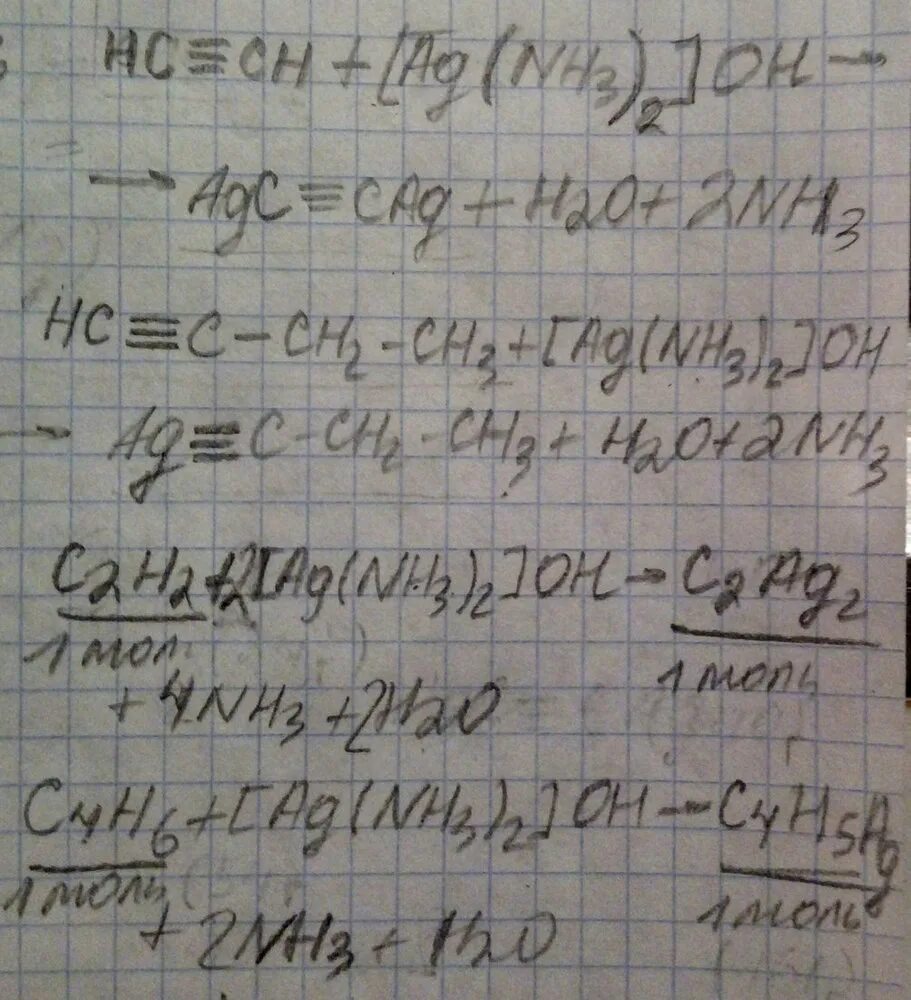 HC≡CH + [Ag(NH3)2]OH →
→ AgC≡CAg + H2O + 2NH3
HC≡C-CH2-CH3 + [Ag(NH3)2]OH
→ Ag≡C-CH2-CH3 + H2O + 2NH3
C2H2 + 2[Ag(NH3)2]OH → C2Ag2
1 моль 1 моль
+ 4NH3 + 2H2O
C4H6 + [Ag(NH3)2]OH → C4H5Ag
1 моль 1 моль
+ 2NH3 + H2O